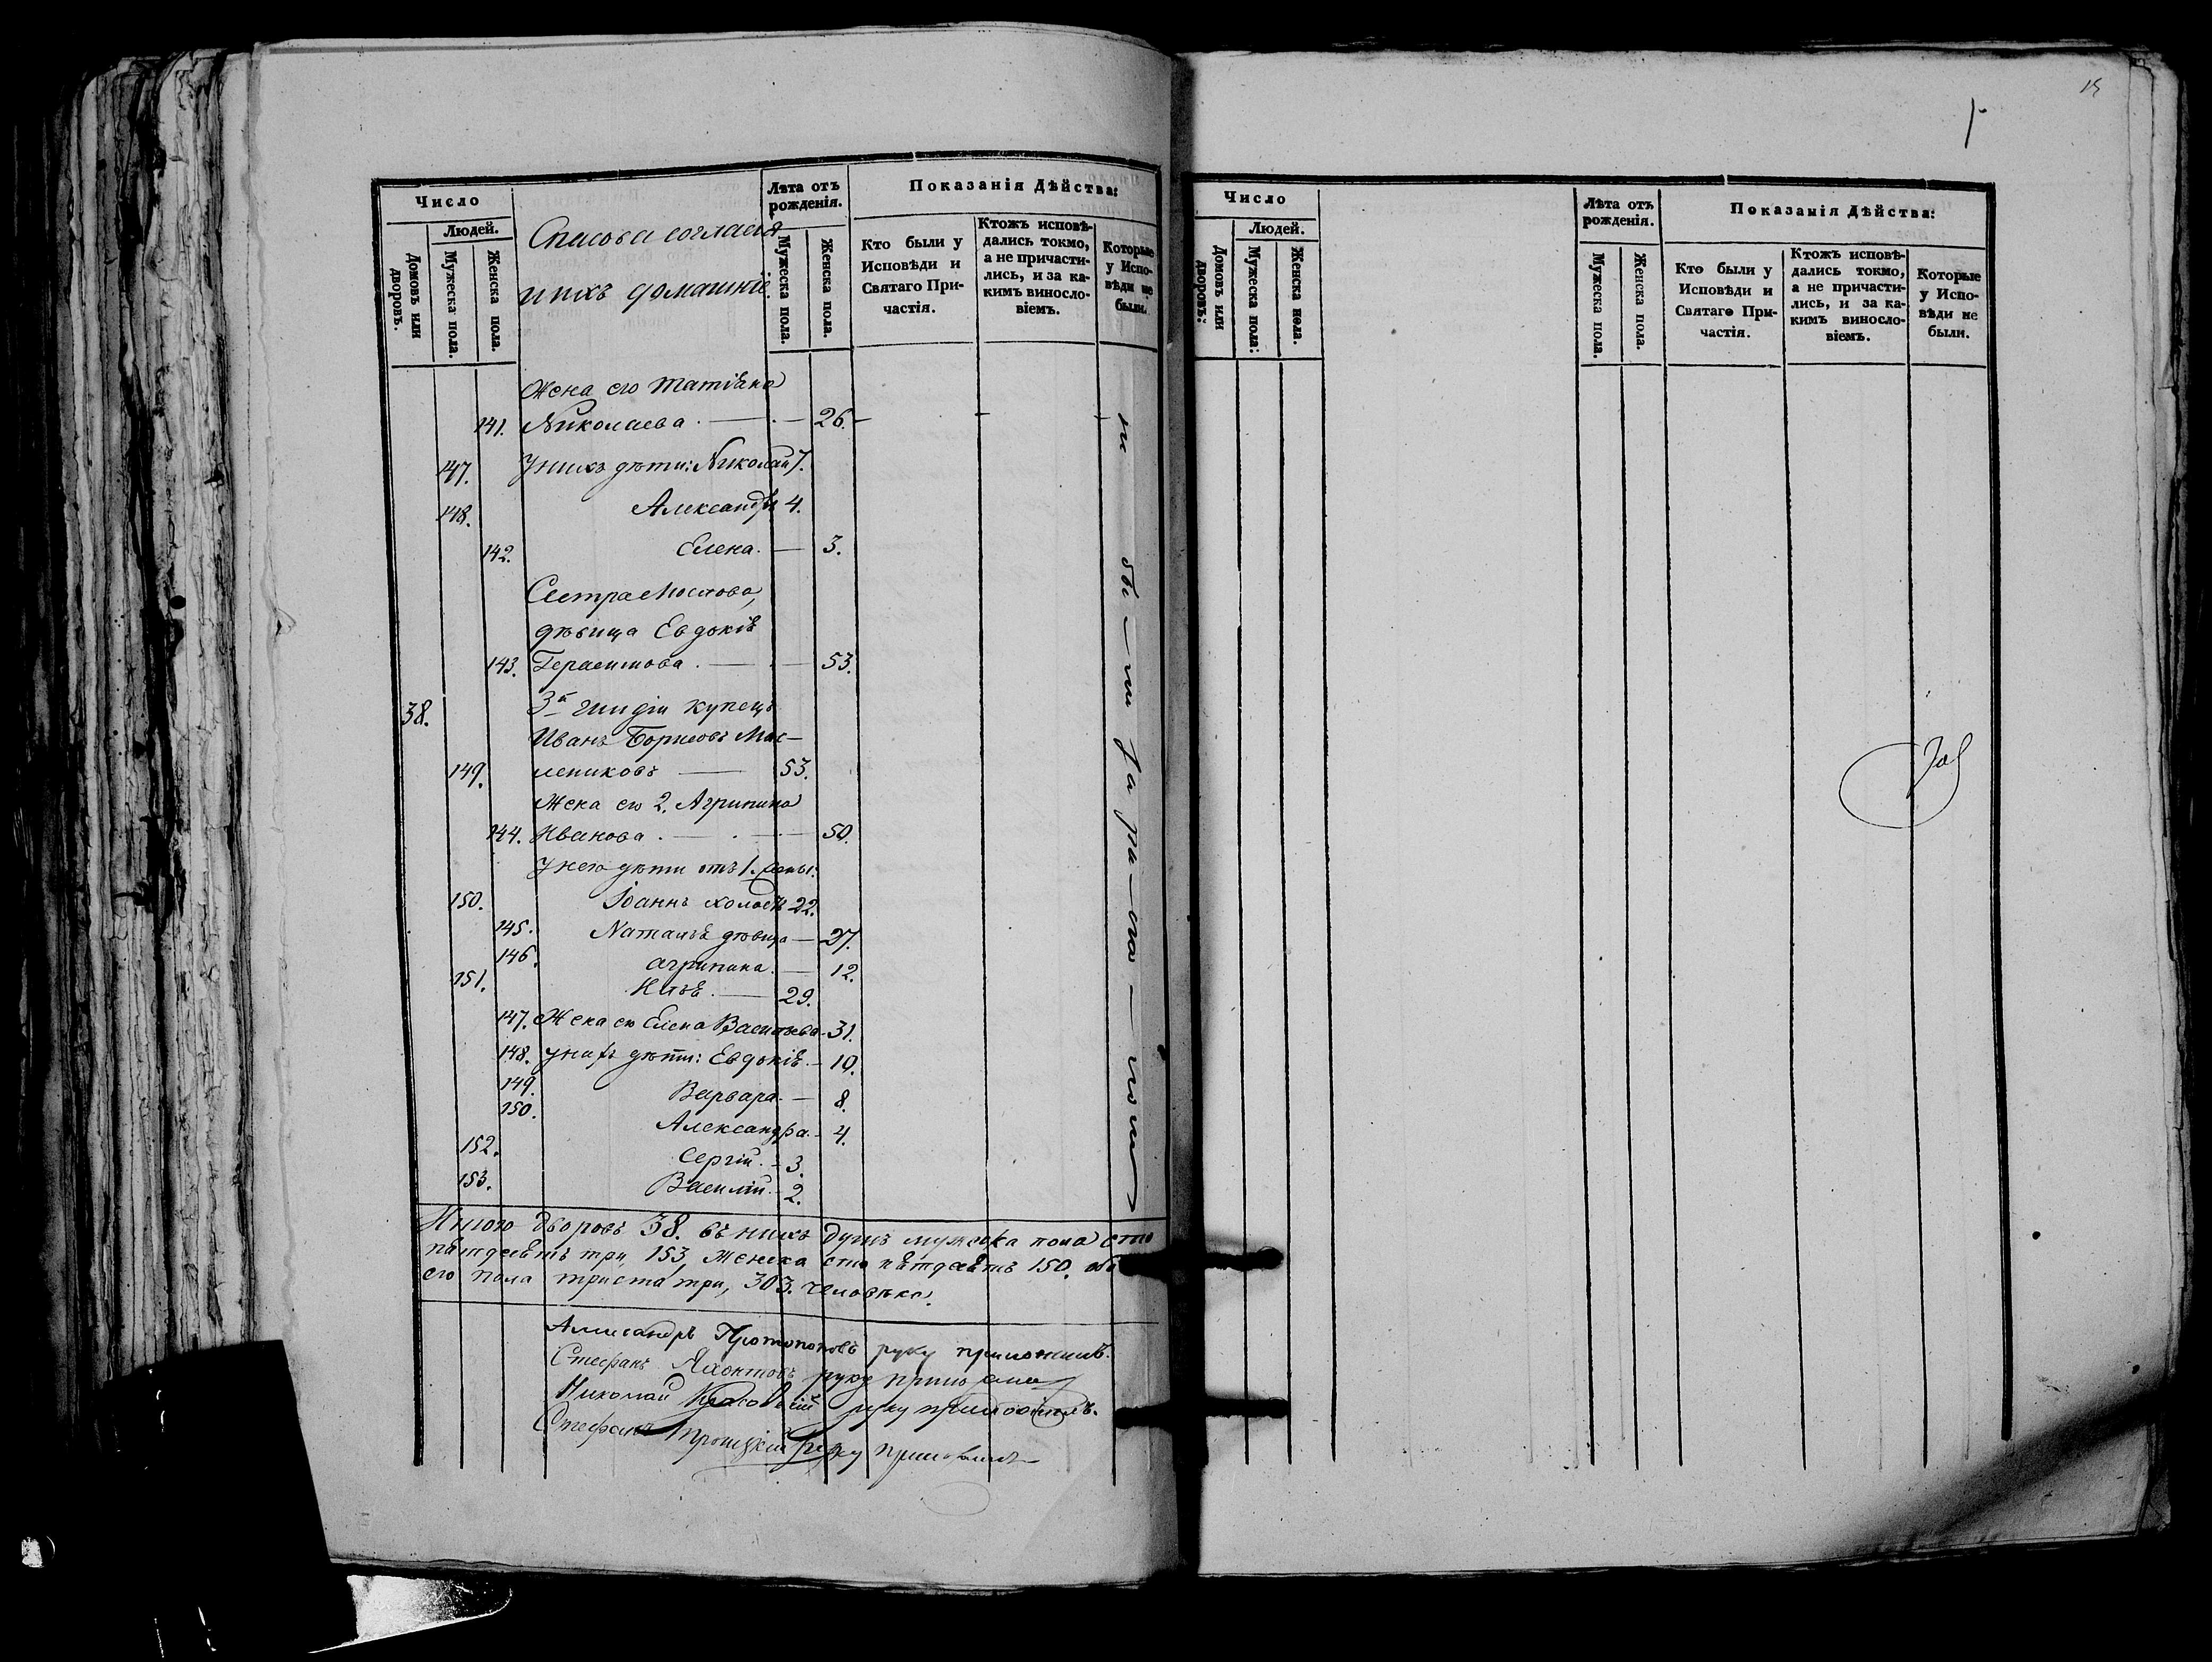 Число
Людей.
Домовъ или дворовъ.
Мужеска пола.
Женска пола.
Спасова согласія
и ихъ домашніе
Лѣта отъ рожденія.
Мужеска пола.
Женска пола.
Показанія Дѣйства:
Кто были у Исповѣди и Святаго Причастія.
Ктожъ исповѣдались токмо, а не причастились, и за какимъ винословіемъ.
Которые у Исповѣди не были.
Жена его Татіяна
141. Николаева 26.
147. У нихъ дѣти: Николай 7.
148. Александръ 4.
142. Елена 3.
Сестра
дѣвица Евдокія
143. Герасимова 53.
38. 3й гилдіи купецъ
Иванъ Борисовъ Мас-
149. лениковъ 53.
Жена его 2. Агрипина
144. Иванова 50.
У него дѣти отъ 1. жены:
150. Іоаннъ холостъ 22.
145. Наталья дѣвица 27.
146. Агрипина 12.
151. Илья 29.
147. Жена его Елена Васильева 31.
148. У нихъ дѣти: Евдокія 10.
149. Варвара 8.
150. Александра 4.
152. Сергій 3.
153. Василій 2.
не были за раско-ломъ
Итого дворовъ 38. въ нихъ душъ мужеска пола сто
пятдесятъ три, 153, женска сто пятдесятъ 150. обо
его пола триста три, 303. человѣка.
Александръ Протопоповъ руку приложилъ.
Стефанъ Яхонтовъ руку приложилъ
Николай руку приложилъ.
Стефанъ Троицкій руку приложилъ
15
Число
Людей.
Домовъ или дворовъ:
Мужеска пола:
Женска пола.
Лѣта отъ рожденія.
Мужеска пола.
Женска пола.
Показанія Дѣйства:
Кто были у Исповѣди и Святаго Причастія.
Ктожъ исповѣдались токмо, а не причастились, и за какимъ винословіемъ.
Которые у Исповѣди не были.